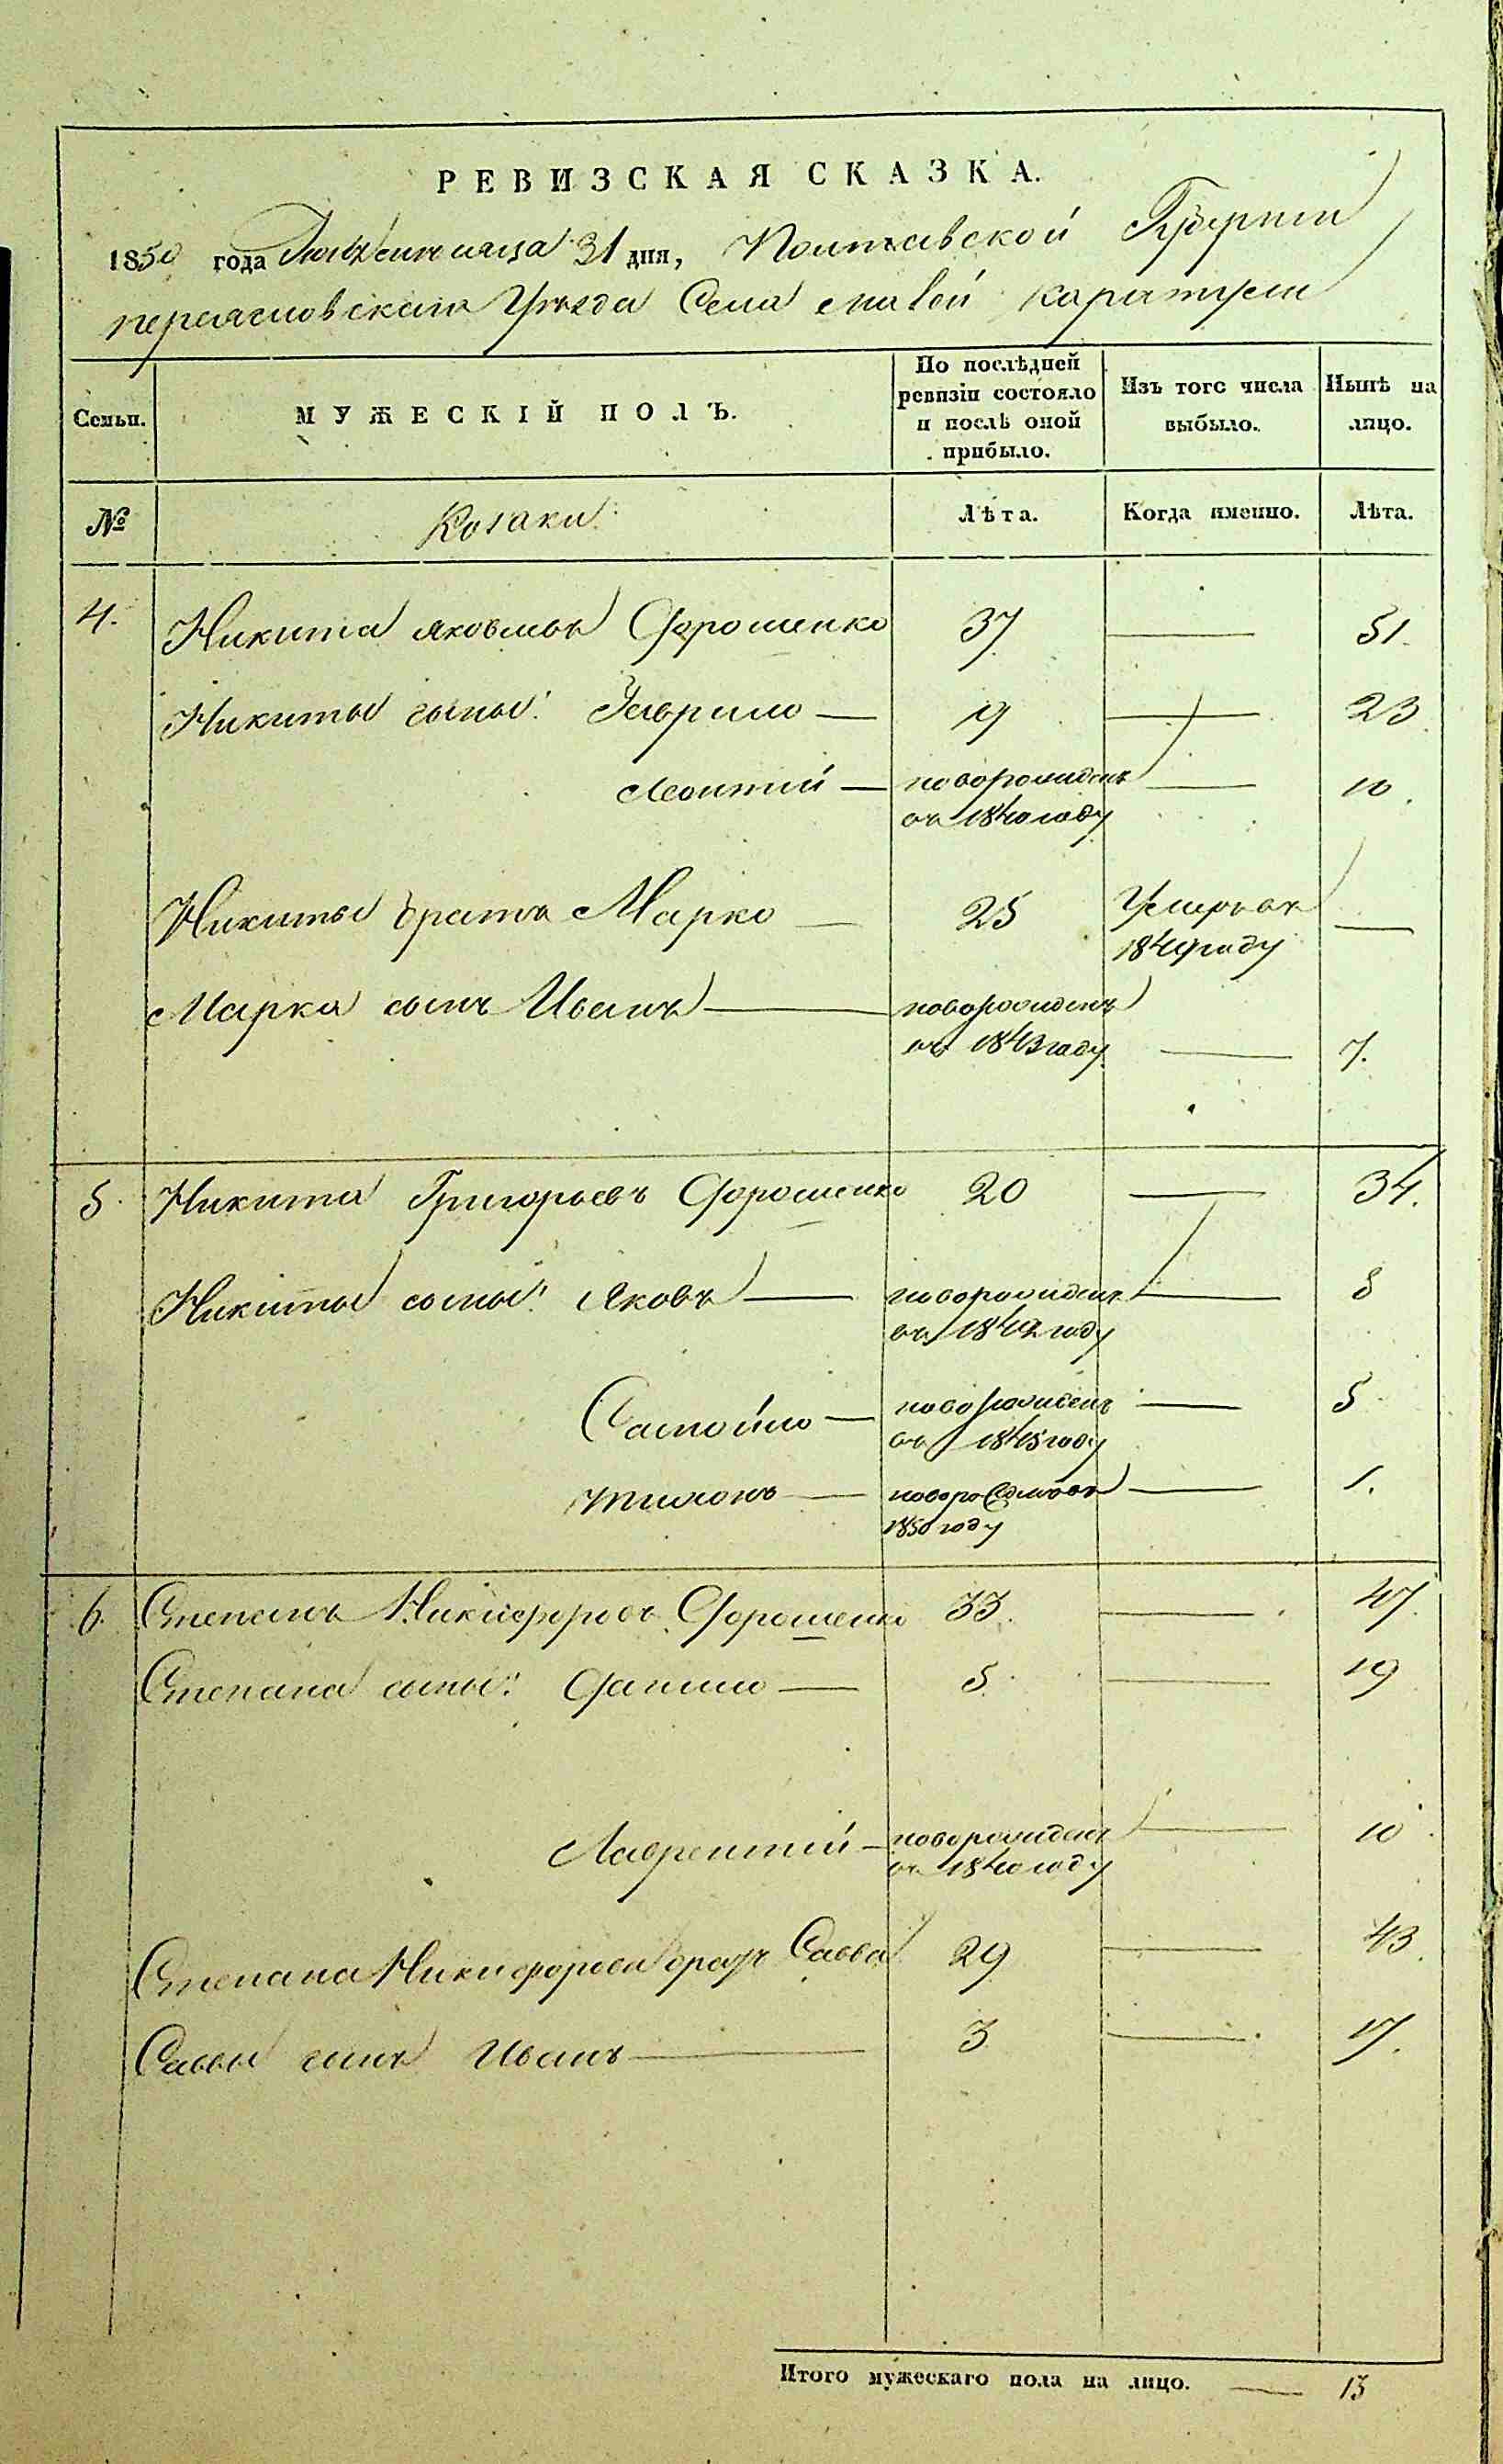 РЕВИЗСКАЯ СКАЗКА.
1850 года месяца 31 дня, Полтавской Губернии
переясловского Уезда Села малой каратули
Семьи.
МУЖЕСКІЙ ПОЛЪ.
По послѣдней
ревизіи состояло
и послѣ оной
прибыло.
Изъ того числа
выбыло.
Нынѣ на
лицо.
№
Козаки:
Лѣта.
Когда именно.
Лѣта.
4. Никита яковлевъ Дорошенко 37 — 51.
Никиты сыны: Гаврило — 19 — 23.
Леонтий — новорожденъ — 10.
въ 1840 году
Никиты братъ Марко — 25 Умеръ въ —
1849 году
Марка сынъ Иванъ — новорожденъ
въ 1843 году — 7.
5. Никита Григорьевъ Дорошенко 20 — 34.
Никиты сыны: Яковъ — новорожденъ — 8
въ 1842 году
Самойло — новорожденъ — 5
въ 1845 году
тихонъ — новорожденъ — 1.
1850 году
6. Степанъ Никифоровъ Дорошенко 33. — 47.
Степана сыны: Данило — 5. — 19
Лаврентий — новорожденъ — 10.
въ 1840 году
Степана Никифорова братъ Савва 29 — 43.
Саввы сынъ Иванъ — 3 — 17.
Итого мужескаго пола на лицо. — 13